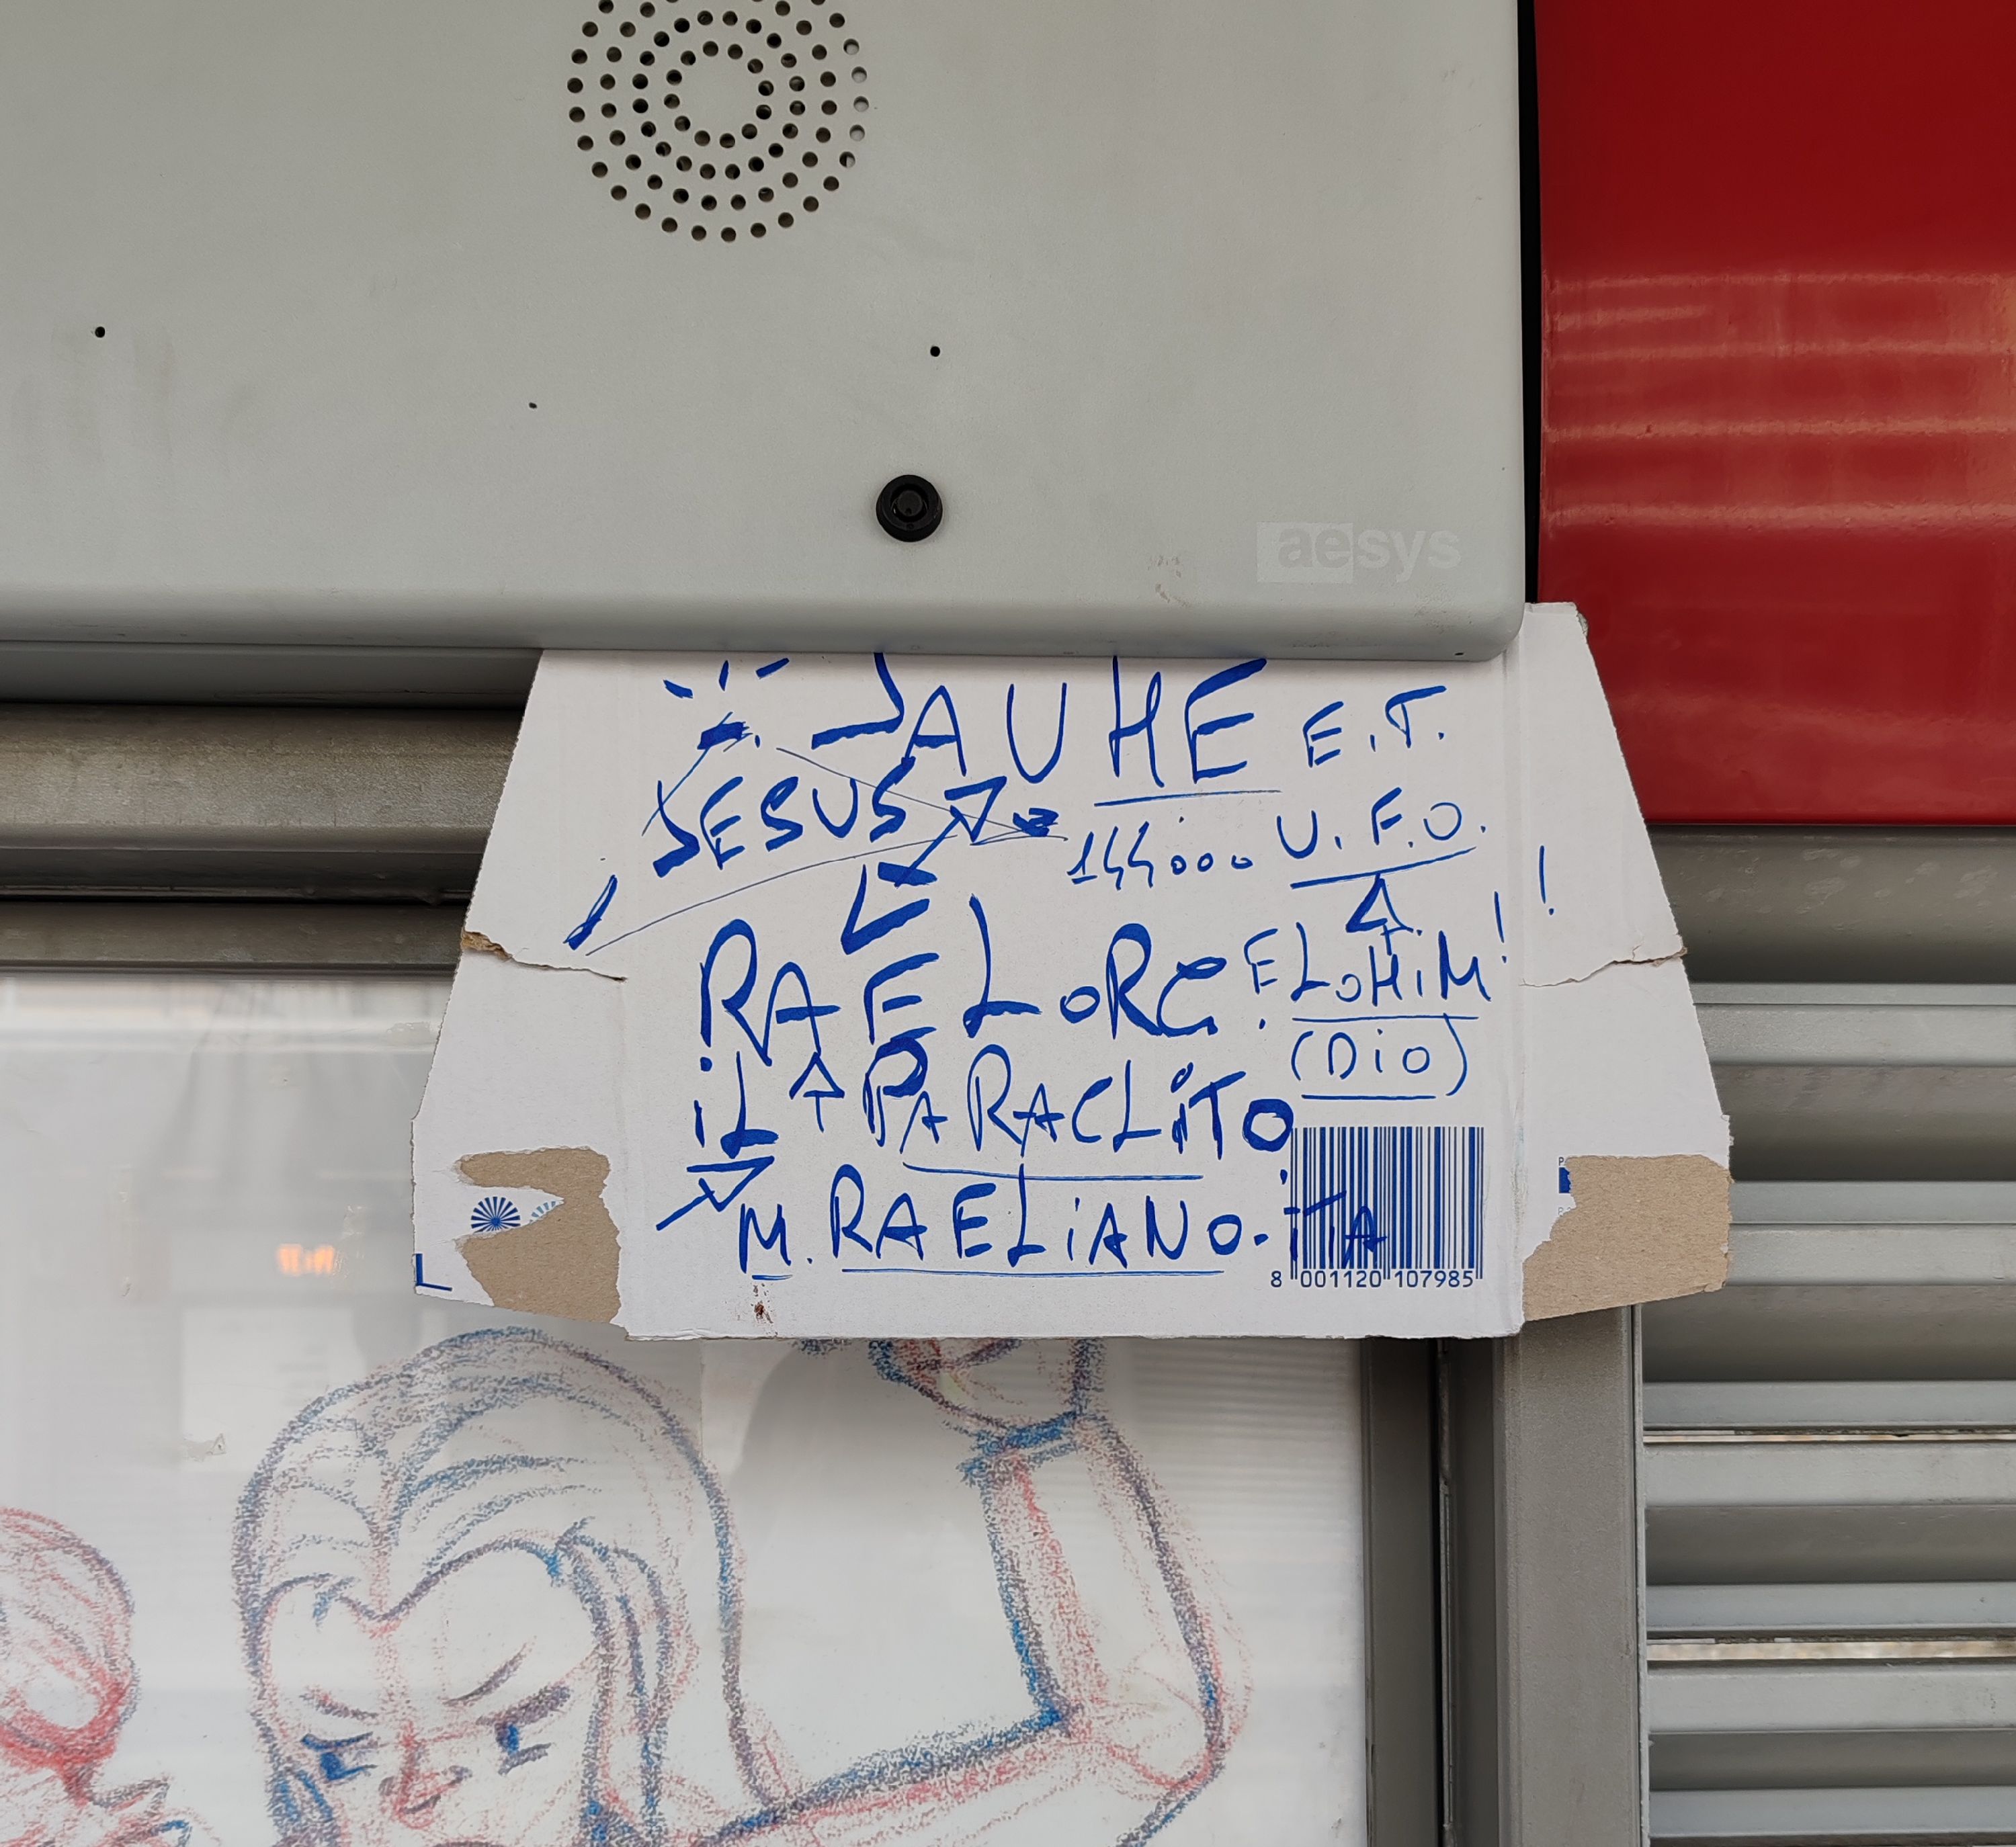 aesys
JAUHE E.T.
JESUS
144000 U.F.O.
RAEL.ORG ELOHIM!!
(DiO)
iL PARACLiTO
M. RAELiANO-iTA
8 001120 107985